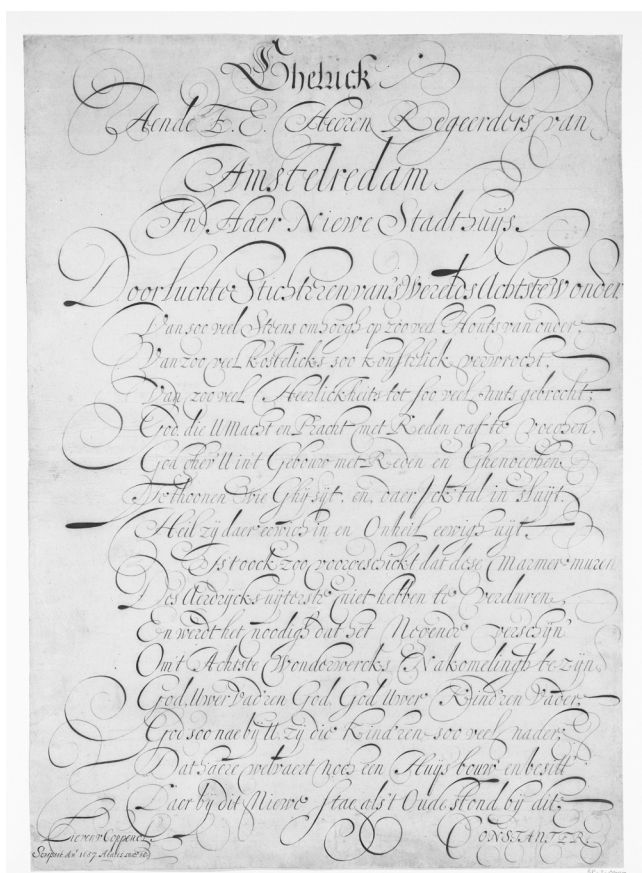 Gheluck
Aende E.E. Heeren Regeerders van
Amstelredam
In Haer Niewe Stadthuijs.
Doorluchte Stichteren van's Werelds Achtste Wonder
Van soo veel Steens omhoogh op zoo veel Houts van onder,
Van zoo veel kostelicks soo konstelick verwrocht,
Van zoo veel Heerlickheits tot soo veel nuts gebrocht;
God, die U Macht en Pracht met Reden gaf te voeghen,
God ghev' U in't Gebouw met Reden en Ghenoeghen
Te thoonen wie Ghij sijt, en, daer Ick 't al in sluijt,
Heil zij daer eewich in en Onheil eewigh uijt.
Is t oock zoo voorgeschickt dat dese Marmer-muren
Des Aerdrijcks uijterste niet hebben te verduren,
En werdt het noodigh dat het Negende verschijn'
Om 't Achtste Wonderwercks Nakomelingh te zijn,
God, Uwer Vad'ren God, God Uwer Kind'ren Vader,
God soo nae bij U, zij die Kind'ren soo veel nader,
Dat haere welvaert noch een Huijs bouw en besitt'
Daer bij dit Niewe stae als 't Oude stond bij dit.
Lieven v Coppenol
Scripsit Aº 1657
CONSTANTER